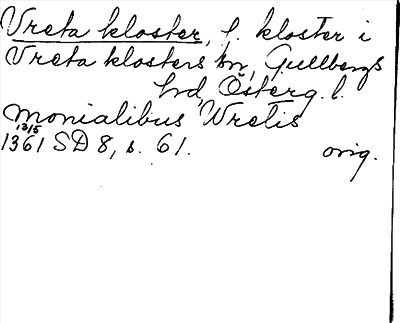 Vreta kloster, f. kloster i
Vreta klosters sn, Gullbergs
hd, Österg. l.
monialibus Wretis
13/5
1361 SD 8, s. 61. orig.